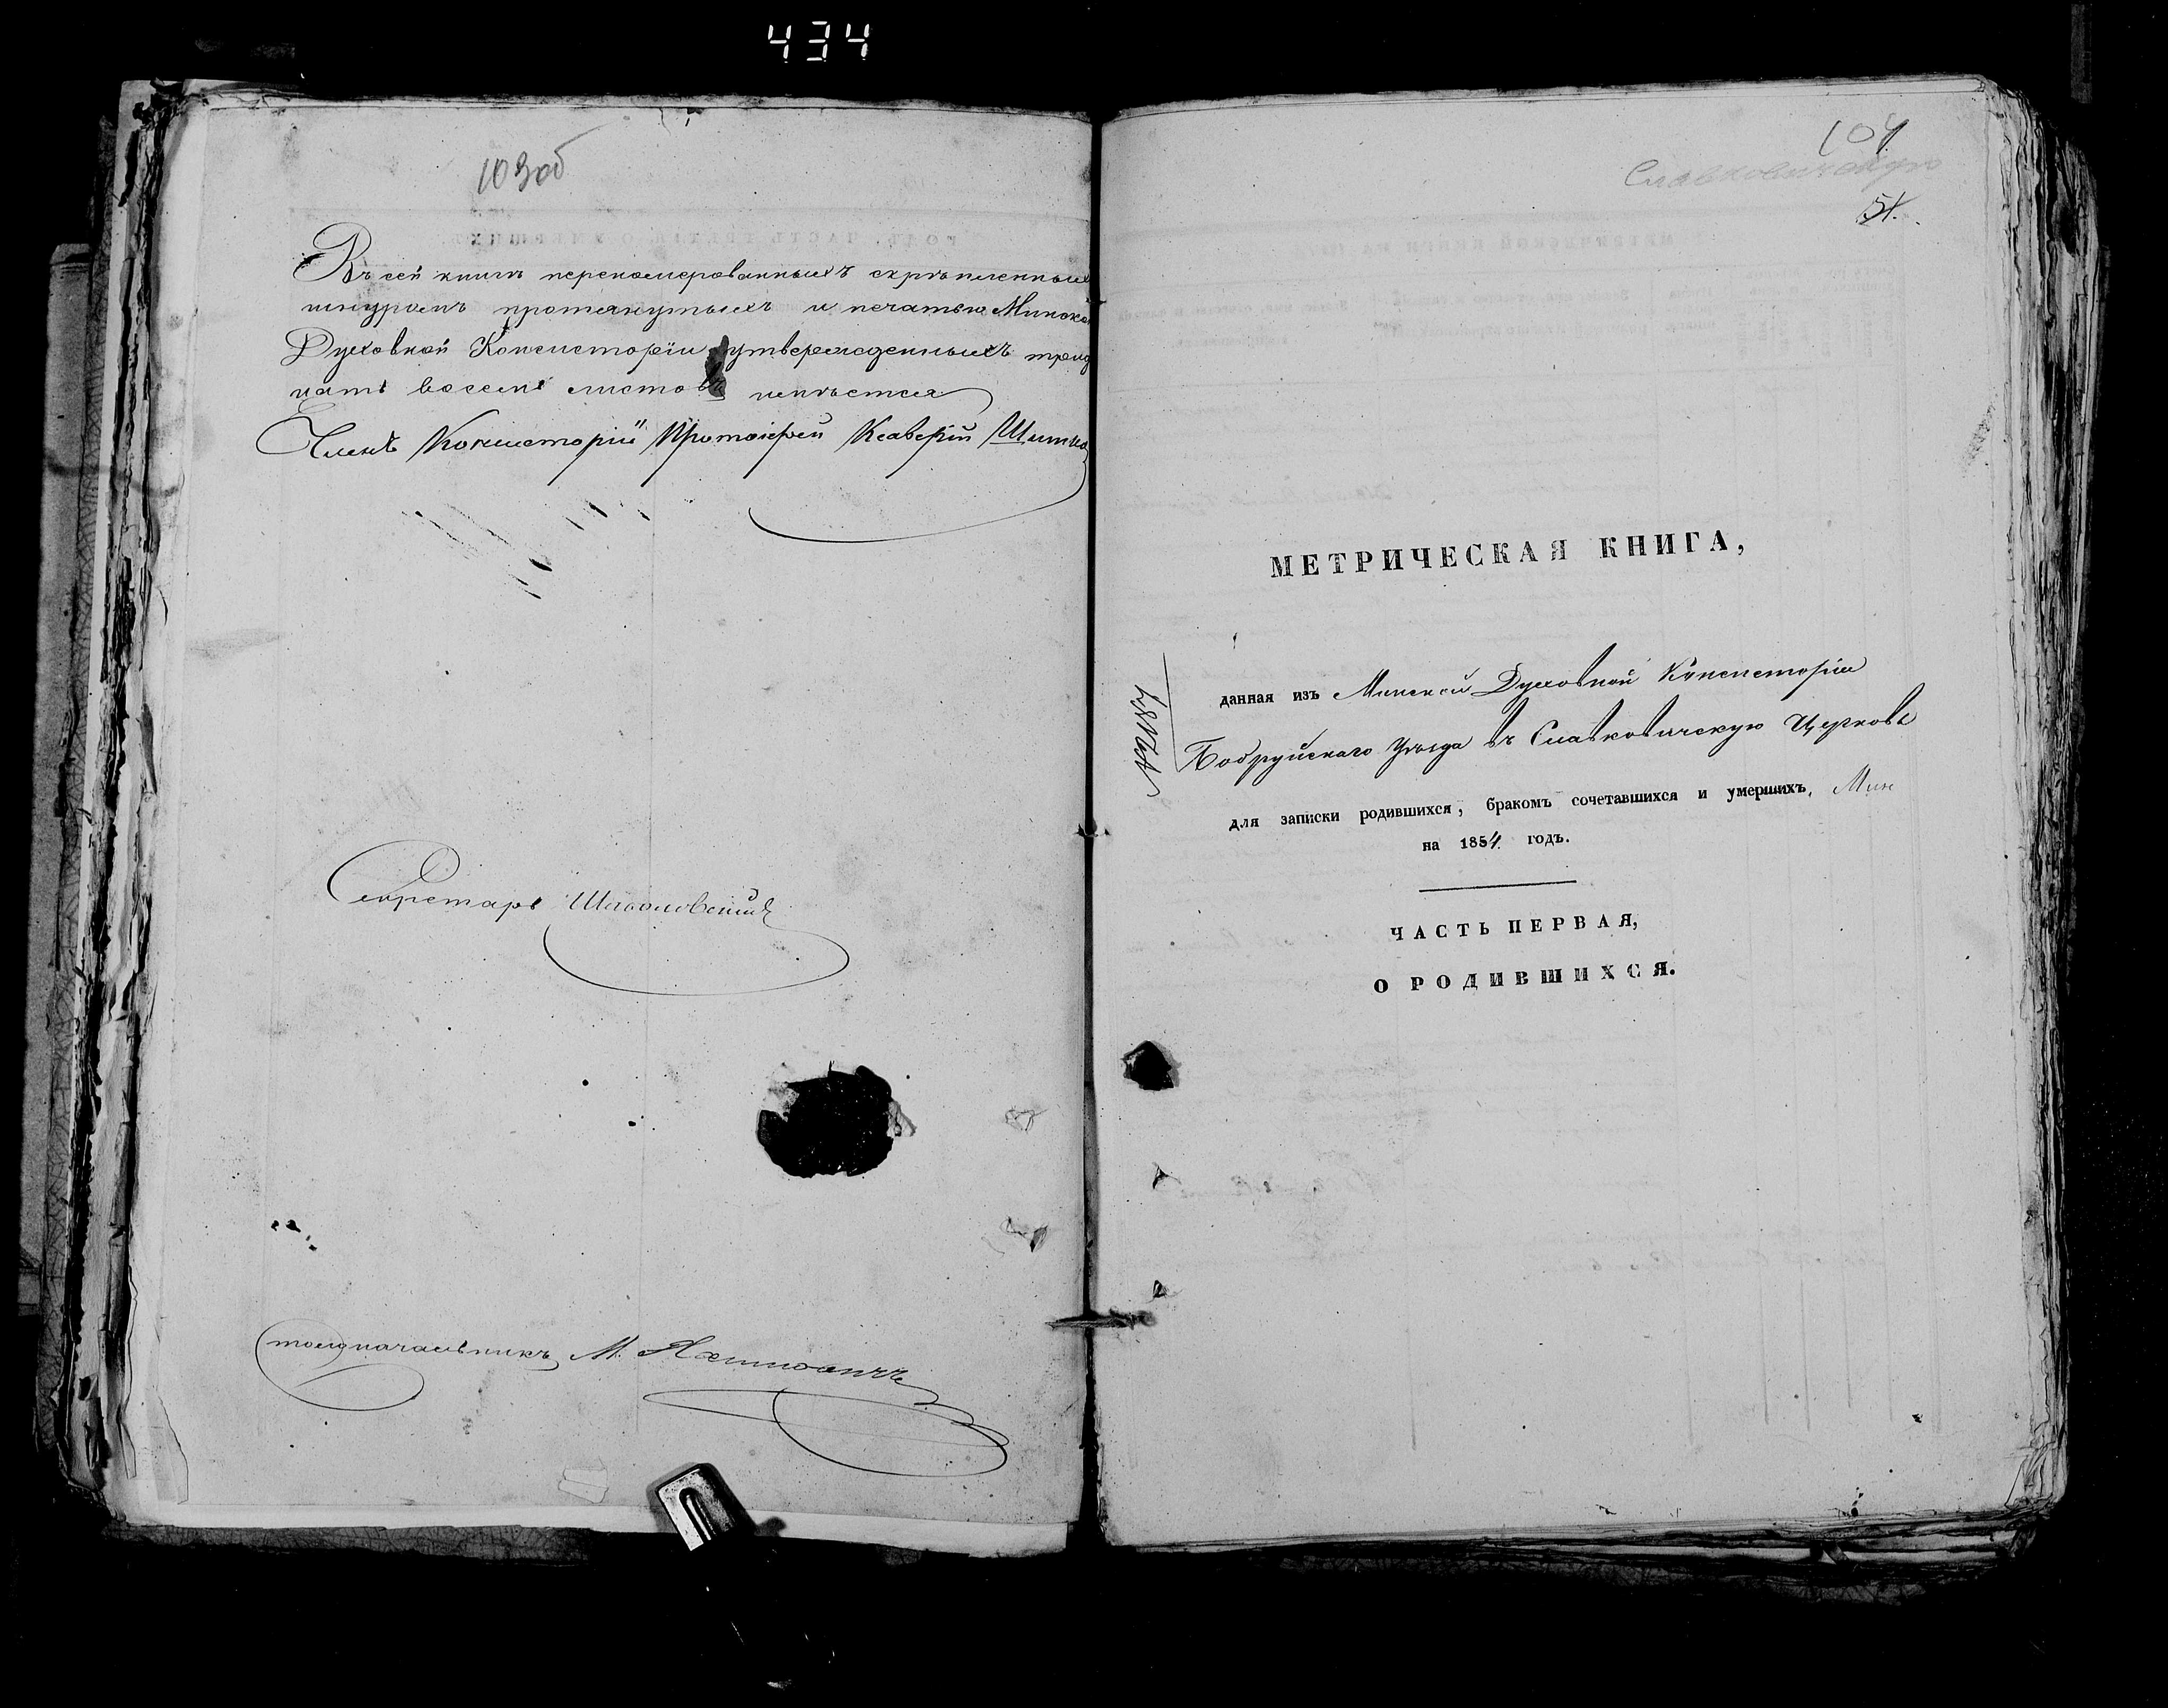 434
103об
Въ сей книгѣ перенумерованныхъ скрѣпленныхъ
шнуромъ протянутыхъ и печатью Минской
Духовной Консисторіи утвержденныхъ трид
цать восемь листовъ имѣется
Членъ Консисторіи Протоіерей Ксаверій
Секретарь
Столоначальникъ М.
104
Славковичскую
51.
МЕТРИЧЕСКАЯ КНИГА,
данная изъ Минской Духовной Консисторіи
Бобруйскаго Уѣзда въ Славковичскую Церковь
для записки родившихся, бракомъ сочетавшихся и умершихъ, Мин
на 1854 годъ.
ЧАСТЬ ПЕРВАЯ,
О РОДИВШИХСЯ.